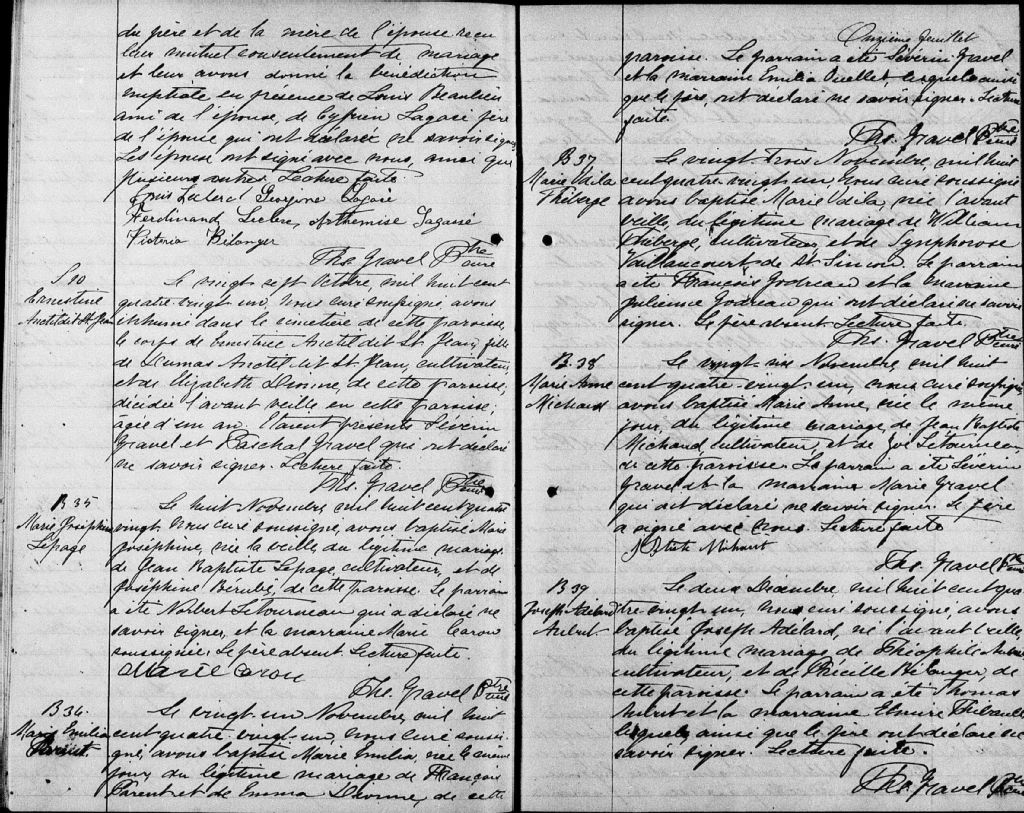 du père et de la mère de l'épouse recu
leur mutuel consentement de mariage
et leur avons donné la bénédiction
nuptiale en présence de Louis Beaulieu
ami de l'épouse, de Cyprien Lagacé père
de l'épouse qui ont déclaré ne savoir signer
Les époux ont signé avec nous, ainsi que
plusieurs autres. Lecture faite.
Louis Leclerc Georgine Lagacé
Ferdinand Leclerc, Arthemise Lagacé
Victoria Bélanger
Ths. Gravel Ptre
curé
S 10
Ernestine
Anctil dit St Jean
Le vingt sept Octobre, mil huit cent
quatre vingt un, nous curé soussigné avons
inhumé dans le cimetière de cette paroisse,
le corps de Ernestine Anctil dit St Jean, fille
de Dumas Anctil dit St Jean, cultivateur,
et de Elizabeth Dionne de cette paroisse,
décédée l'avant veille en cette paroisse,
agée d'un an. Etaient présents Séverin
Gravel et Paschal Gravel qui ont déclaré
ne savoir signer. Lecture faite.
Ths. Gravel Ptre
curé
B 35
Marie Joséphine
Lepage
Le huit Novembre, mil huit cent quatre
vingt, nous curé soussigné, avons baptisé Marie
Joséphine, née la veille, du légitime mariage
de Jean Baptiste Lepage, cultivateur, et de
Joséphine Bérubé, de cette paroisse. Le parrain
a été Norbert Létourneau qui a déclaré ne
savoir signer, et la marraine Marie Caron
soussignée. Le père absent. Lecture faite.
Marie Caron
Ths. Gravel Ptre
curé
B 36.
Marie Emilia
Parent
Le vingt un Novembre, mil huit
cent quatre vingt-un nous curé soussi-
gné, avons baptisé Marie Emilia, née le même
jour, du légitime mariage de François
Parent et de Emma Dionne, de cette
Onzième feuillet
paroisse. Le parrain a été Séverin Gravel
et la marraine Emilia Ouellet, lesquels ainsi
que le père, ont déclaré ne savoir signer. Lecture
faite.
Ths. Gravel Ptre
curé
B 37
Marie Odila
Théberge
Le vingt Trois Novembre, mil huit
cent quatre vingt un nous curé soussigné
avons baptisé Marie Odila, née l'avant
veille, du légitime mariage de William
Théberge, cultivateur, et de Symphorose
Vaillancourt de St Simon. Le parrain
a été François Godreau et la marraine
Julienne Godreau qui ont déclaré ne savoir
signer. Le père absent Lecture faite.
Ths. Gravel Ptre
curé
B 38
Marie Anne
Michaud
Le vingt-six Novembre, mil huit
cent quatre-vingt-un, nous curé soussigné
avons baptisé Marie Anne, née le même
jour, du légitime mariage, de Jean Baptiste
Michaud, cultivateur, et de Zoé Létourneau,
de cette paroisse. Le parrain a été Séverin
Gravel et la marraine Marie Gravel
qui ont déclaré ne savoir signer. Le père
a signé avec nous. Lecture faite
Ths. Gravel Ptre
curé
B 39
Joseph Adélard
Aubut
Le deux Décembre, mil huit cent qua
tre vingt un, nous curé soussigné, avons
baptisé Joseph Adélard, né l'avant veille,
du légitime mariage, de Théophile Aubut
cultivateur, et de Précille Bélanger, de
cette paroisse. Le parrain a été Thomas
Aubut et la marraine Elmire Thibault
lesquels, ainsi que le père ont déclaré ne
savoir signer. Lecture faite.
Ths. Gravel Ptre
curé